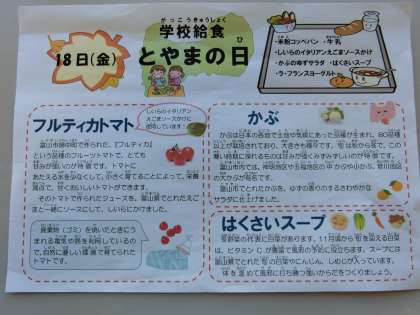 がっこうきゅうしょく
学校給食
とやまの日
18日(金)
・米粉コッペパン ・牛乳
・しいらのイタリアンえごまソースかけ
・かぶのゆずサラダ ・はくさいスープ
・ラ・フランスヨーグルト
フルティカトマト
しいらのイタリアン
えごまソースかけに
使用しています!
富山市婦中町で作られた、「フルティカ」
という品種のフルーツトマトで、とても
甘みが強いのが特徴です。トマトに
あたえる水を少なくして、小さく育てることによって、栄養
満点で、甘くおいしいトマトができます。
そのトマトで作られたジュースを、富山県でとれたえご
まと一緒にソースにして、しいらにかけました。
廃棄物(ゴミ)を焼いたときにう
まれる電気や熱を利用しているの
で、自然に優しい環境で育てられた
トマトです。
かぶ
かぶは日本の各地で土地や気候にあった品種が生まれ、80品種
以上が栽培されており、大きさも様々です。旬は秋から冬で、この
寒い時期に採れるものは甘みが強くみずみずしいのが特徴です。
富山県でとれたかぶを、ゆずの香りのするさわやかな
サラダに仕上げました。
はくさいスープ
冬野菜の代表に白菜があります。11月頃から旬を迎える白菜
は、ビタミンCが豊富で風邪の予防に役立ちます。スープには
富山県でとれた旬の白菜やにんじん、しめじが入っています。
体を温めて風邪に打ち勝つ強いからだをつくりましょう。